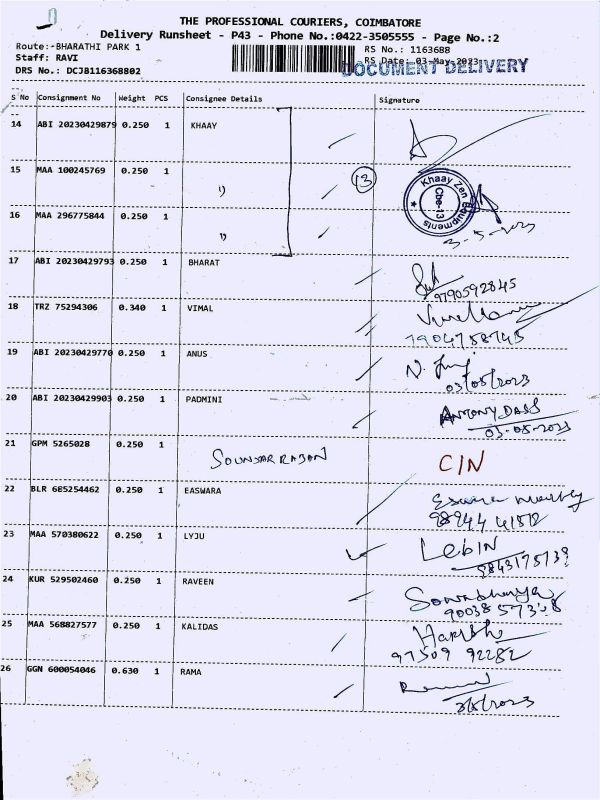 THE PROFESSIONAL COURIERS, COIMBATORE
Delivery Runsheet - P43 - Phone No.:0422-3505555 - Page No.:2
Route:-BHARATHI PARK 1 RS No.: 1163688
Staff: RAVI RS Date: 03-May-2023
DRS No.: DCJB116368802 DOCUMENT DELIVERY
S No Consignment No Weight PCS Consignee Details Signature
14 ABI 20230429879 0.250 1 KHAAY
15 MAA 100245769 0.250 1 " 13
Khaay Zen Equipments
Cbe-13
16 MAA 296775844 0.250 1 " 3-5-2023
17 ABI 20230429793 0.250 1 BHARAT
9790592845
18 TRZ 75294306 0.340 1 VIMAL
7904758745
19 ABI 20230429770 0.250 1 ANUS N.
03/05/2023
20 ABI 20230429903 0.250 1 PADMINI ANTONY DASS
03-05-2023
21 GPM 5265028 0.250 1 SOUNSAR RAJAN C/N
22 BLR 685254462 0.250 1 EASWARA
98944 41512
23 MAA 570380622 0.250 1 LYJU LebIN
9843175739
24 KUR 529502460 0.250 1 RAVEEN
90038 57328
25 MAA 568827577 0.250 1 KALIDAS Harish
97509 92282
26 GGN 600054046 0.630 1 RAMA
3/5/2023